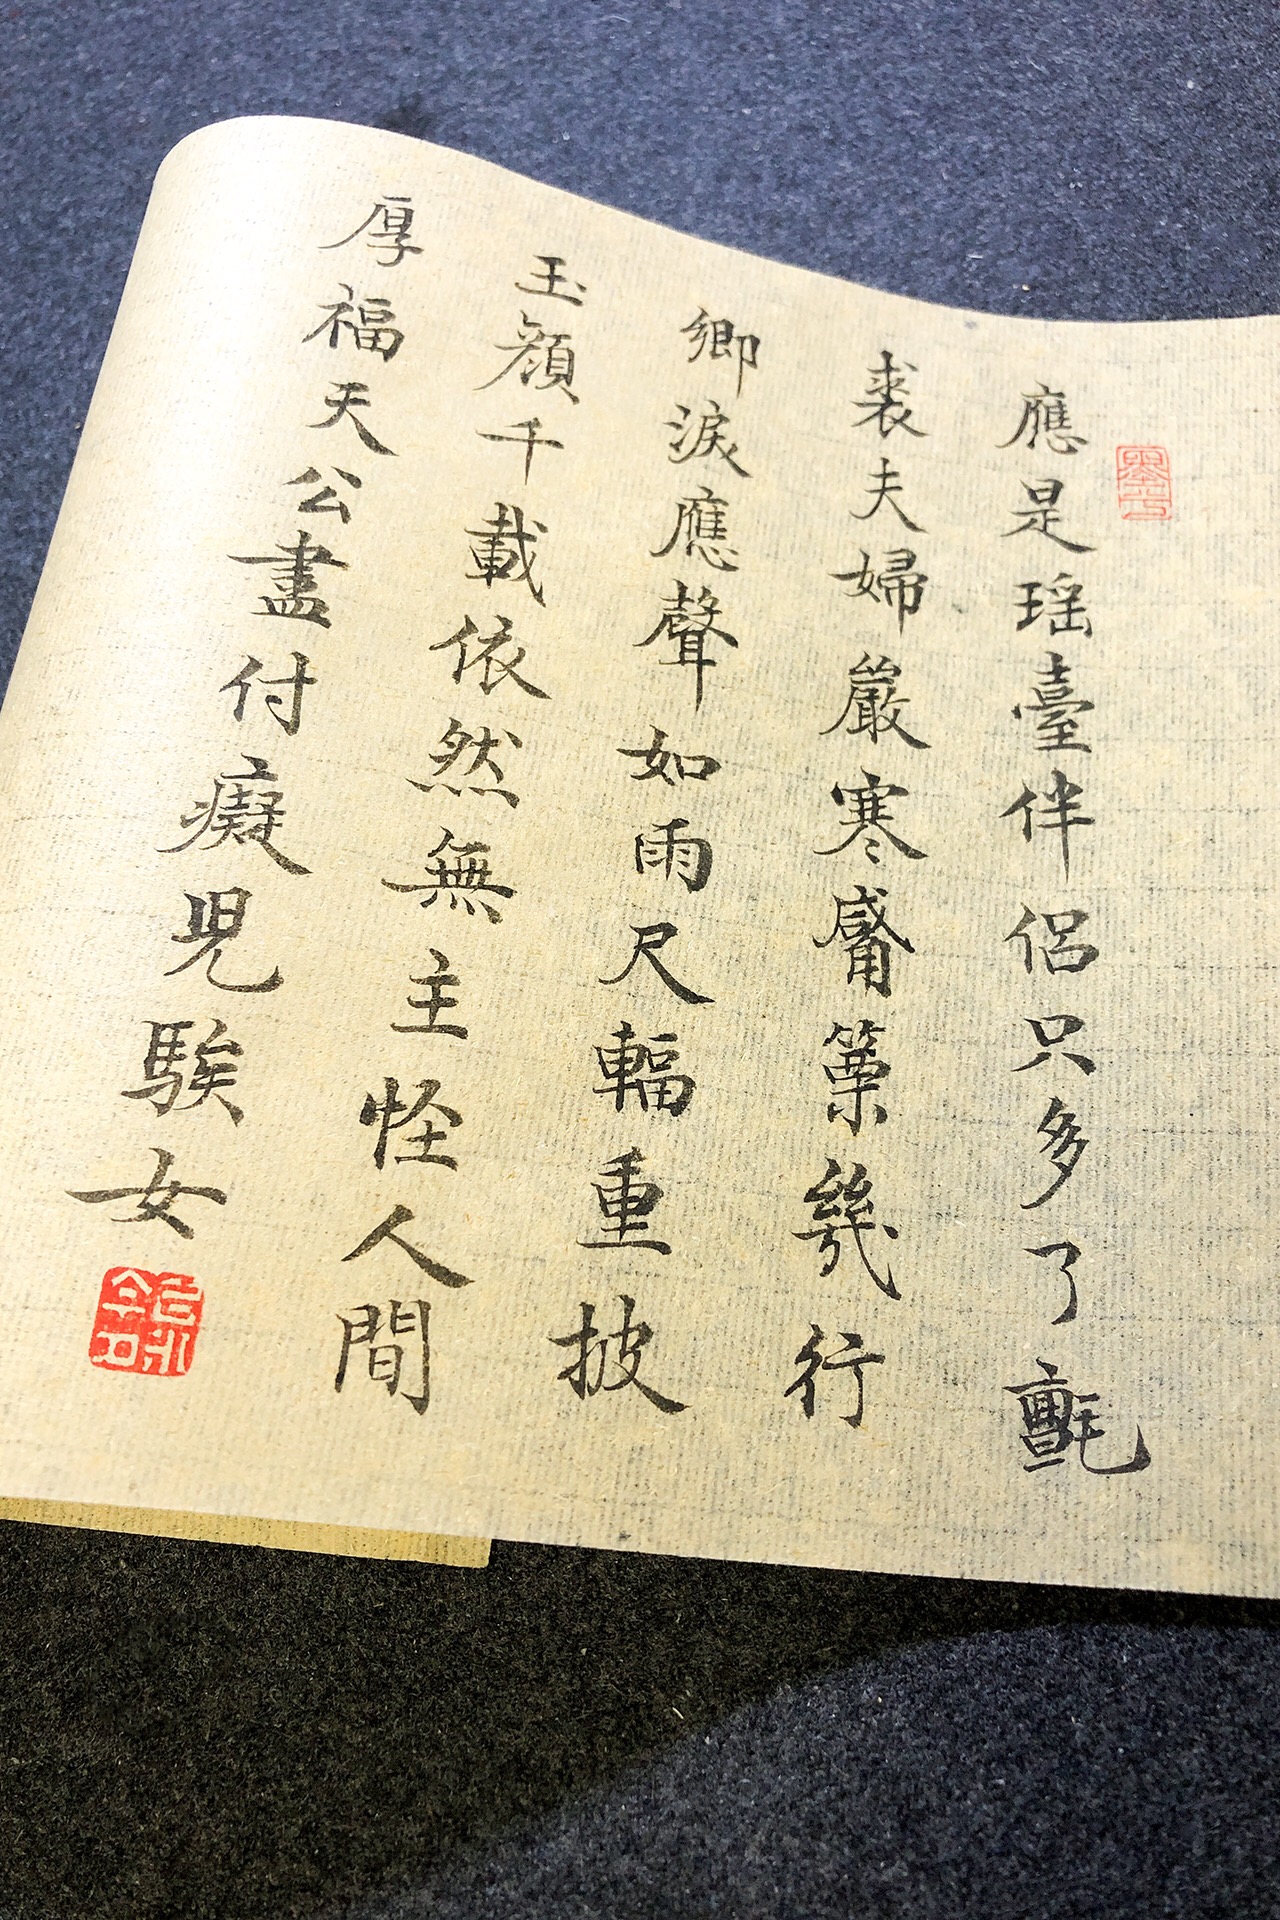 應是瑶臺伴侣只多了氈
裘夫婦嚴寒觱篥幾行
鄉淚應聲如雨尺輻重披
玉顏千載依然無主怪人間
厚福天公盡付癡兒騃女